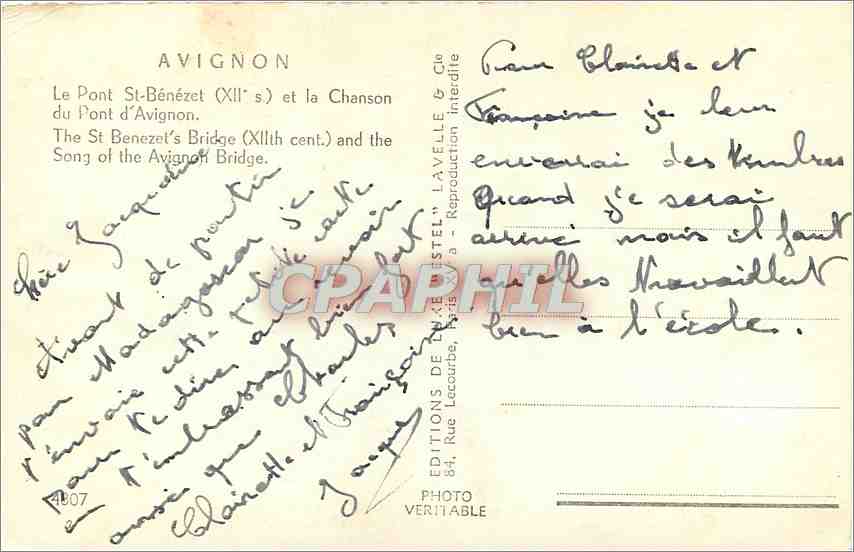 AVIGNON
Le Pont St-Bénézet (XIIe s.) et la Chanson
du Pont d'Avignon.
The St Benezet's Bridge (XIIth cent.) and the
Song of the Avignon Bridge.
Chère Jacqueline
Avant de partir
pour Madagascar je
t'envoie cette petite carte
pour te dire au revoir
en t'embrassant bien fort
ainsi que Charles
Clairette et Françoise
Jacques
4807
EDITIONS DE LUXE "ESTEL" LAVELLE & Cie
84, Rue Lecourbe, Paris XV - Reproduction interdite
PHOTO
VERITABLE
Pour Clairette et
Françoise je leur
enverrai des timbres
Quand je serai
arrivé mais il faut
qu'elles travaillent
bien à l'école.
CPAPHIL